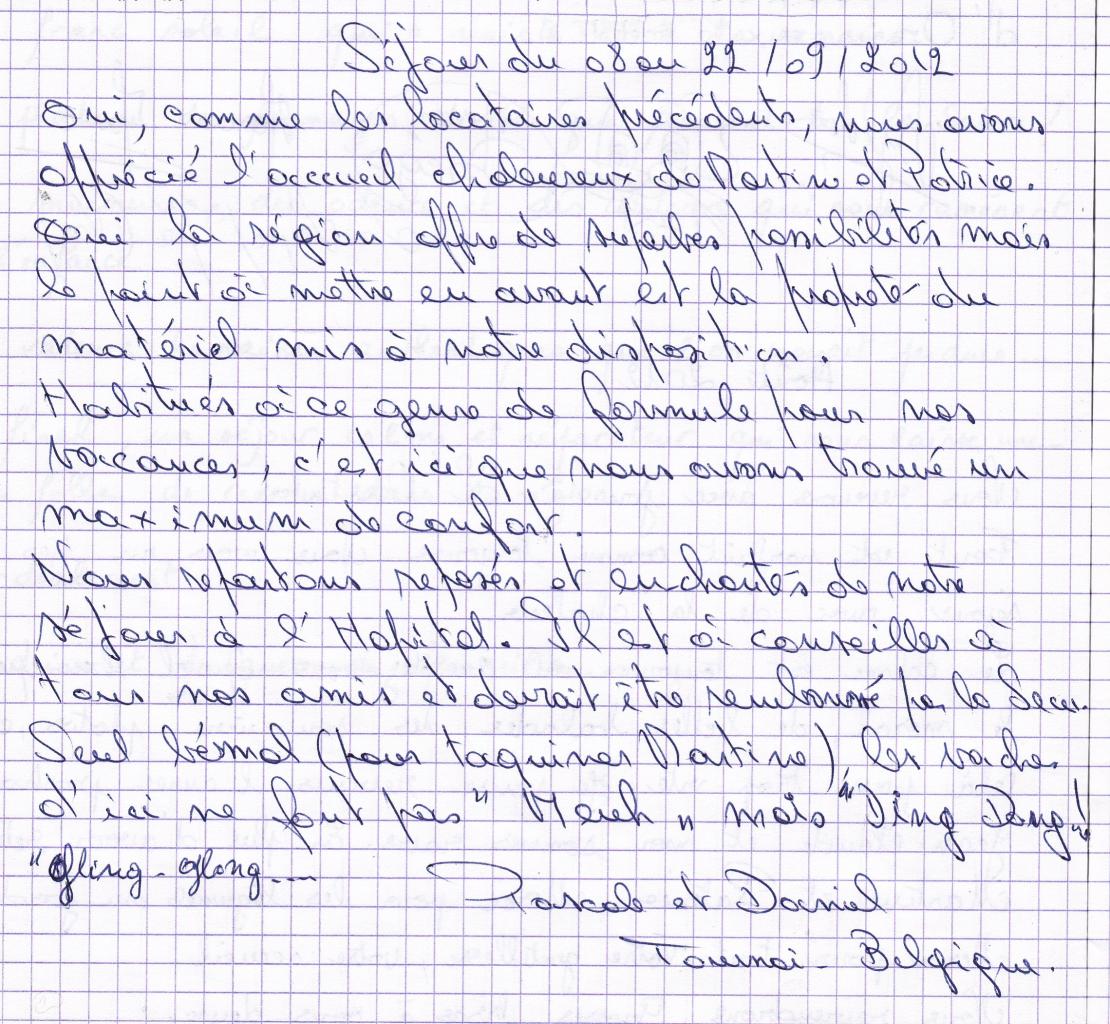 Séjour du 08 au 22/09/2012
Oui, comme les locataires précédents, nous avons
apprécié l'accueil chaleureux de Martine et Patrice.
Oui la région offre de superbes possibilités mais
le point à mettre en avant est la propreté du
matériel mis à notre disposition.
Habitués à ce genre de formule pour nos
vacances, c'est ici que nous avons trouvé un
maximum de confort.
Nous repartons reposés et enchantés de notre
séjour à l'Hopital. Il est à conseiller à
tous nos amis et devrait être remboursé par la Secu.
Seul bémol (pour taquiner Martine), les vaches
d'ici ne font pas "Meuh" mais "Ding Dong"!
"gling-glong....
Pascale et Daniel
Tournai - Belgique.